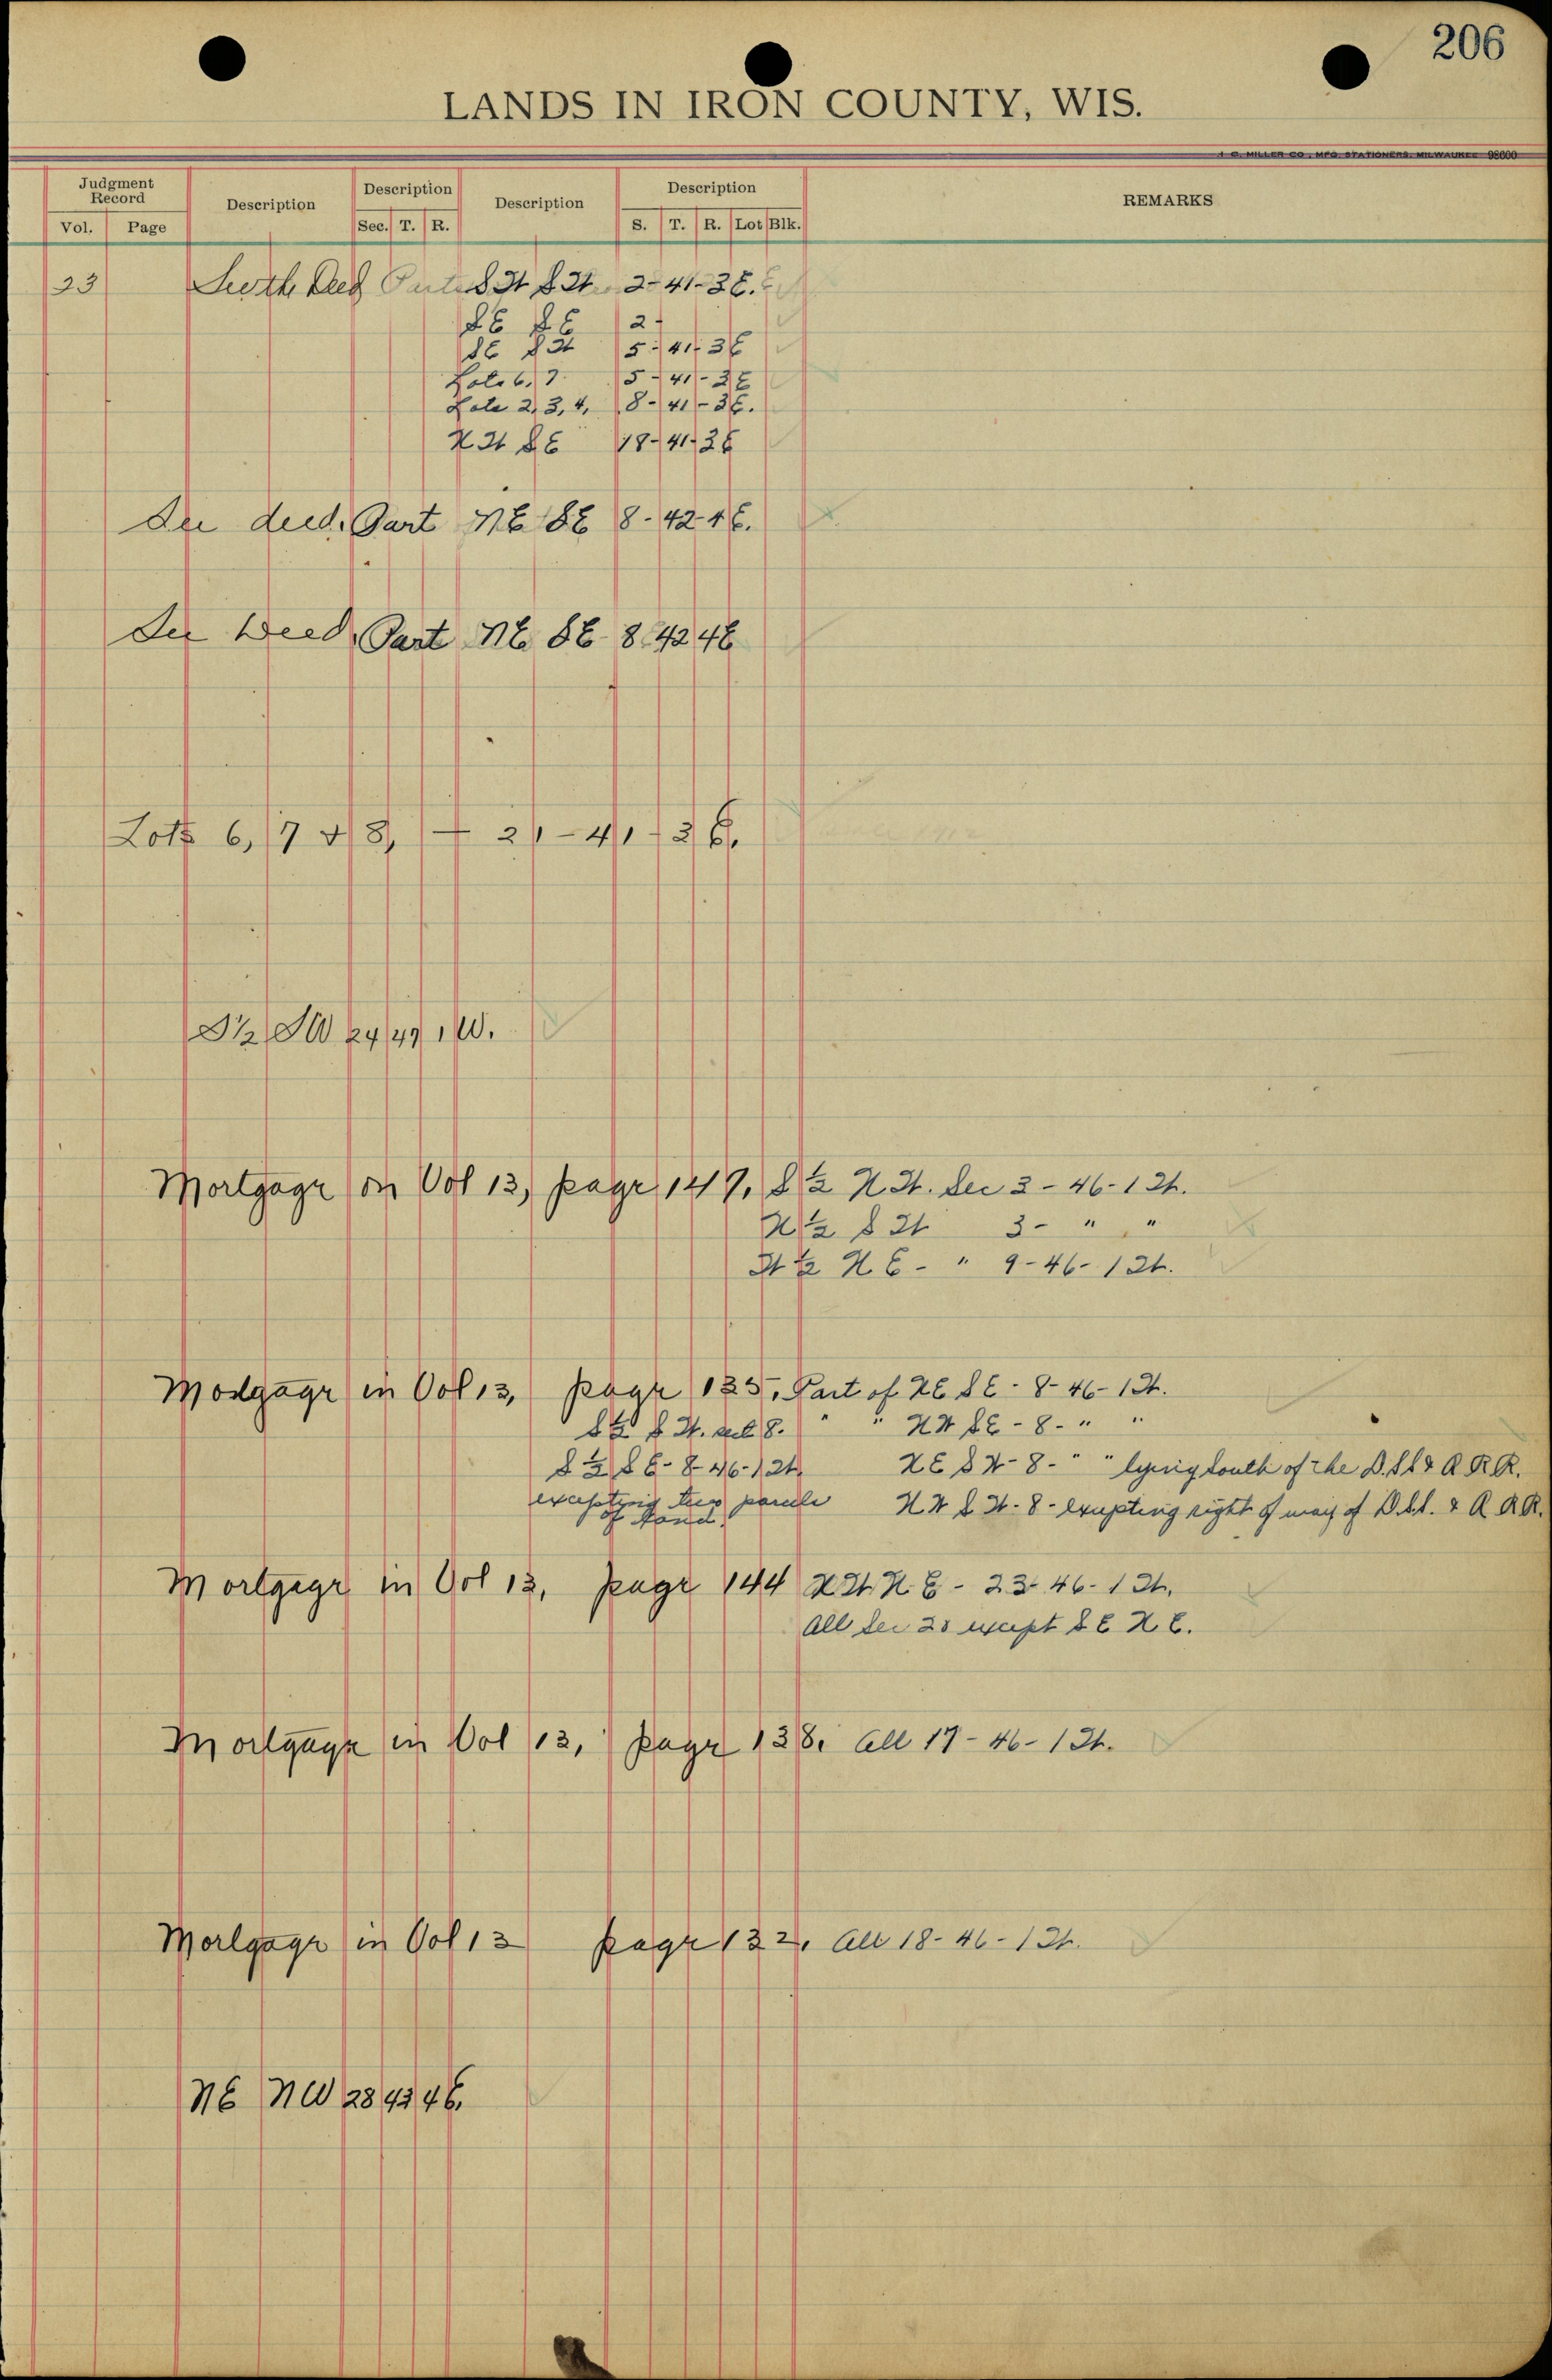 206
LANDS IN IRON COUNTY, WIS.
H. C. MILLER CO., MFG. STATIONERS, MILWAUKEE 98600
Judgment Record
Description
Description
Description
Description
REMARKS
Vol. Page
Sec. T. R.
S. T. R. Lot Blk.
23 See the Deed Part SW SW 2-41-3E.
SE SE 2-
SE SW 5-41-3E
Lots 6, 7. 5-41-3E
Lots 2, 3, 4, 8-41-3E.
NW SE 18-41-3E
See deed. Part NE SE 8-42-4E.
See Deed, Part NE SE 8 42 4E
Lots 6, 7 & 8, — 21-41-3E.
S½ SW 24 47 1 W.
Mortgage on Vol 13, page 147, S½ NW. Sec 3-46-1W.
N½ SW 3- " "
W½ NE- " 9-46-1W.
Mortgage in Vol 13, page 135, Part of NE SE-8-46-1W.
S½ SW. sect 8. " " NW SE-8- " "
S½ SE-8-46-1W. NE SW-8- " " lying South of the D.S.S & A R.R.
excepting two parcels NW SW-8-excepting right of way of D.S.S. & A R.R.
of land.
Mortgage in Vol 13, page 144 NW NE-23-46-1W,
All Sec 20 except SE NE.
Mortgage in Vol 13, page 138. All 17-46-1W.
Mortgage in Vol 13 page 132, All 18-46-1W.
NE NW 28 43 4E.